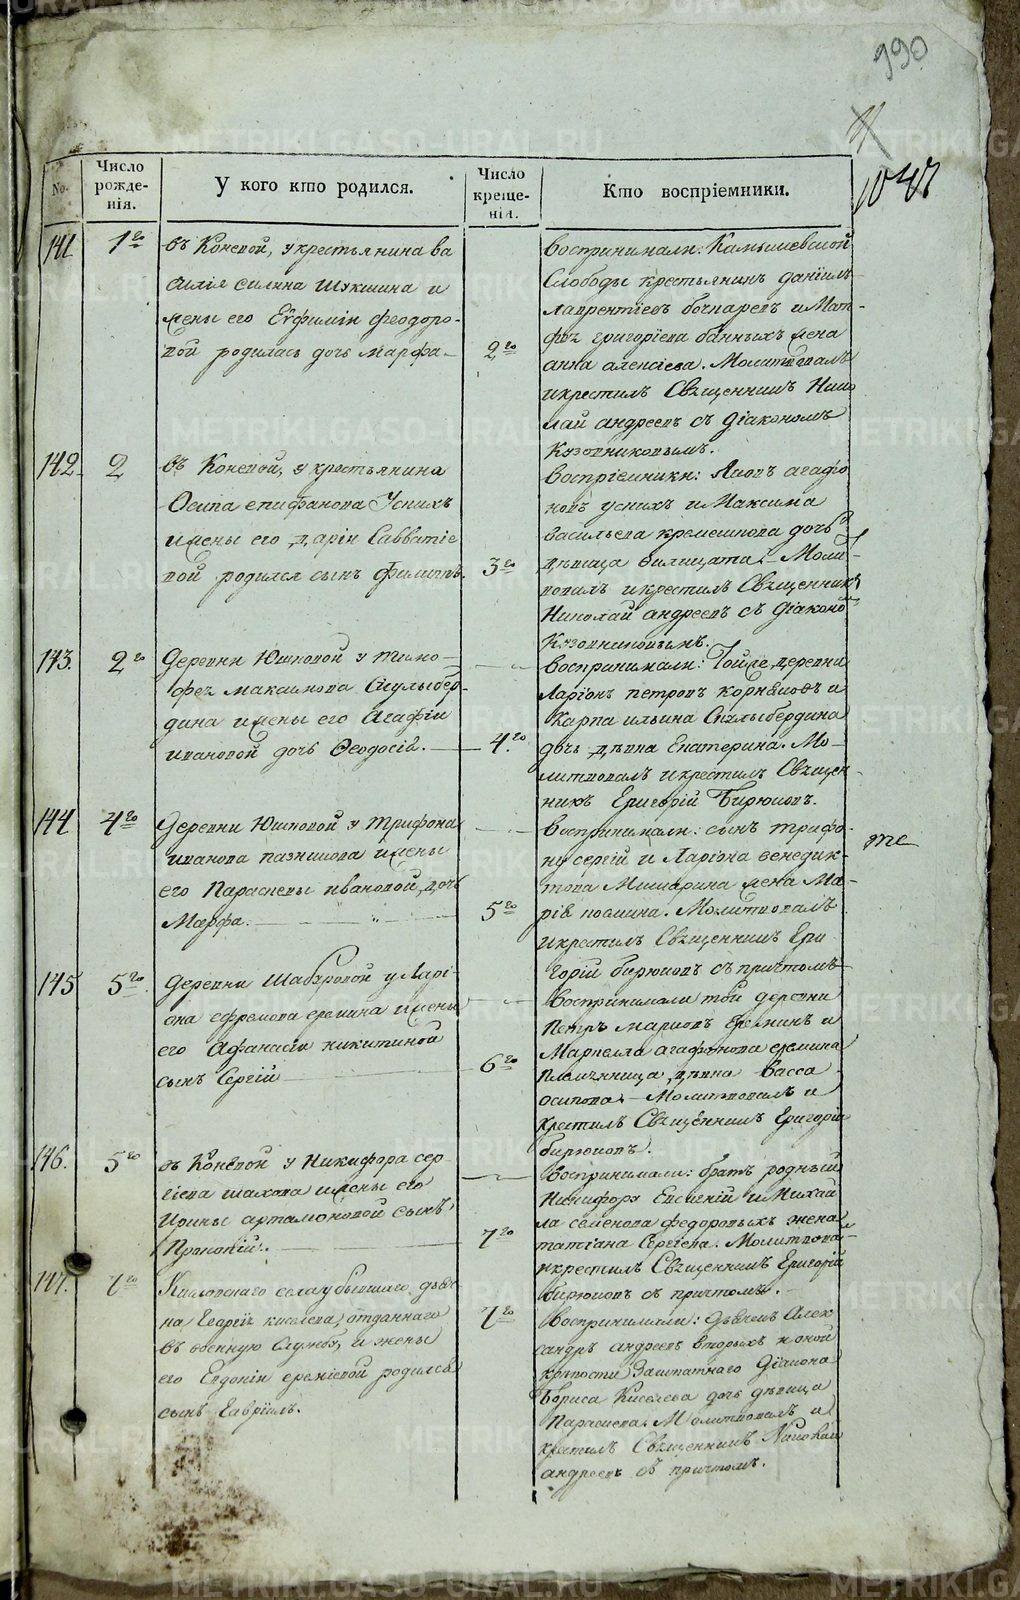 990
1047
No
Число рожде-нія.
У кого кто родился.
Число креще-нія.
Кто воспріемники.
141
1го
въ Коневой, у крестьянина Ва
силія силина Шукшина и
жены его Еѵфиміи Феодоро-
вой родилась дочь Марфа
2го
воспринимали: Камышевской
Слободы крестьянинъ Даніилъ
Лаврентіевъ бочкаревъ и Мат-
фея григоріева банныхъ жена
анна алексіева. Молитвовалъ
икрестилъ Священникъ Нико
лай андреевъ съ діакономъ
142
2
въ Коневой, у крестьянина
Осипа епифанова Ускихъ
и жены его дарiи Савватіе
вой родился сынъ Филиппъ.
3го
воспріемники: агафо
новъ ускихъ и Максима
васильева дочь
дѣвица Молит-
вовалъ икрестилъ Священникъ
Николай андреевъ съ діаконо
143.
2го
деревни Юшковой у тимо-
фея максимова
дина и жены его Агафiи
ивановой дочь Ѳеодосія.
4.го
воспринимали: Тойже деревни
Ларіонъ петровъ и
Карпа ильина
дочь дѣвка Екатерина. Мо-
литвовалъ икрестилъ Священ-
никъ Григорій Бирюковъ.
144
4го
деревни Юшковой у трифона
иванова и жены
его Параскевы ивановой, дочь
Марфа.
5го
воспринимали: сынъ трифо-
ну сергій и Ларіона венедик-
това жена Ма-
рія Молитвовалъ
икрестилъ Священникъ Гри
горій бирюковъ съ причтомъ
145
5го
деревни Шабуровой у Ларі-
она ефремова еремина и жены
его Афанасіи никитиной
сынъ Сергій
6го
Воспринимали той деревни
Петръ марковъ Ереминъ и
Маркелла агафонова еремина
племянница дѣвка васса
осипова. Молитвовалъ и
крестилъ Священникъ Григорій
бирюковъ.
146.
5го
въ Коневой у Никифора сер-
гіева шахова и жены его
Ирины артамоновой сынъ
Прокопій.
7го
воспринимали: братъ родный
Никифору Евсигній и Михай
ла семенова федоровыхъ жена
татіана Сергіева. Молитвова
икрестилъ Священникъ Григорій
бирюковъ съ причтомъ.
147.
7го
села у бывшаго дьяч
ка Георгія киселева, отданнаго
въ военную службу, и жены
его Евдокіи ереміевой родился
сынъ Гавріилъ.
7го
Воспринимали: дьячекъ Алек
сандръ андреевъ вторыхъ и оной
крѣпости Заштатнаго Діакона
Бориса Киселева дочь дѣвица
Параскева. Молитвовалъ и
крестилъ Священникъ Николай
андреевъ съ причтомъ.
METRIKI.GASO-URAL.RU